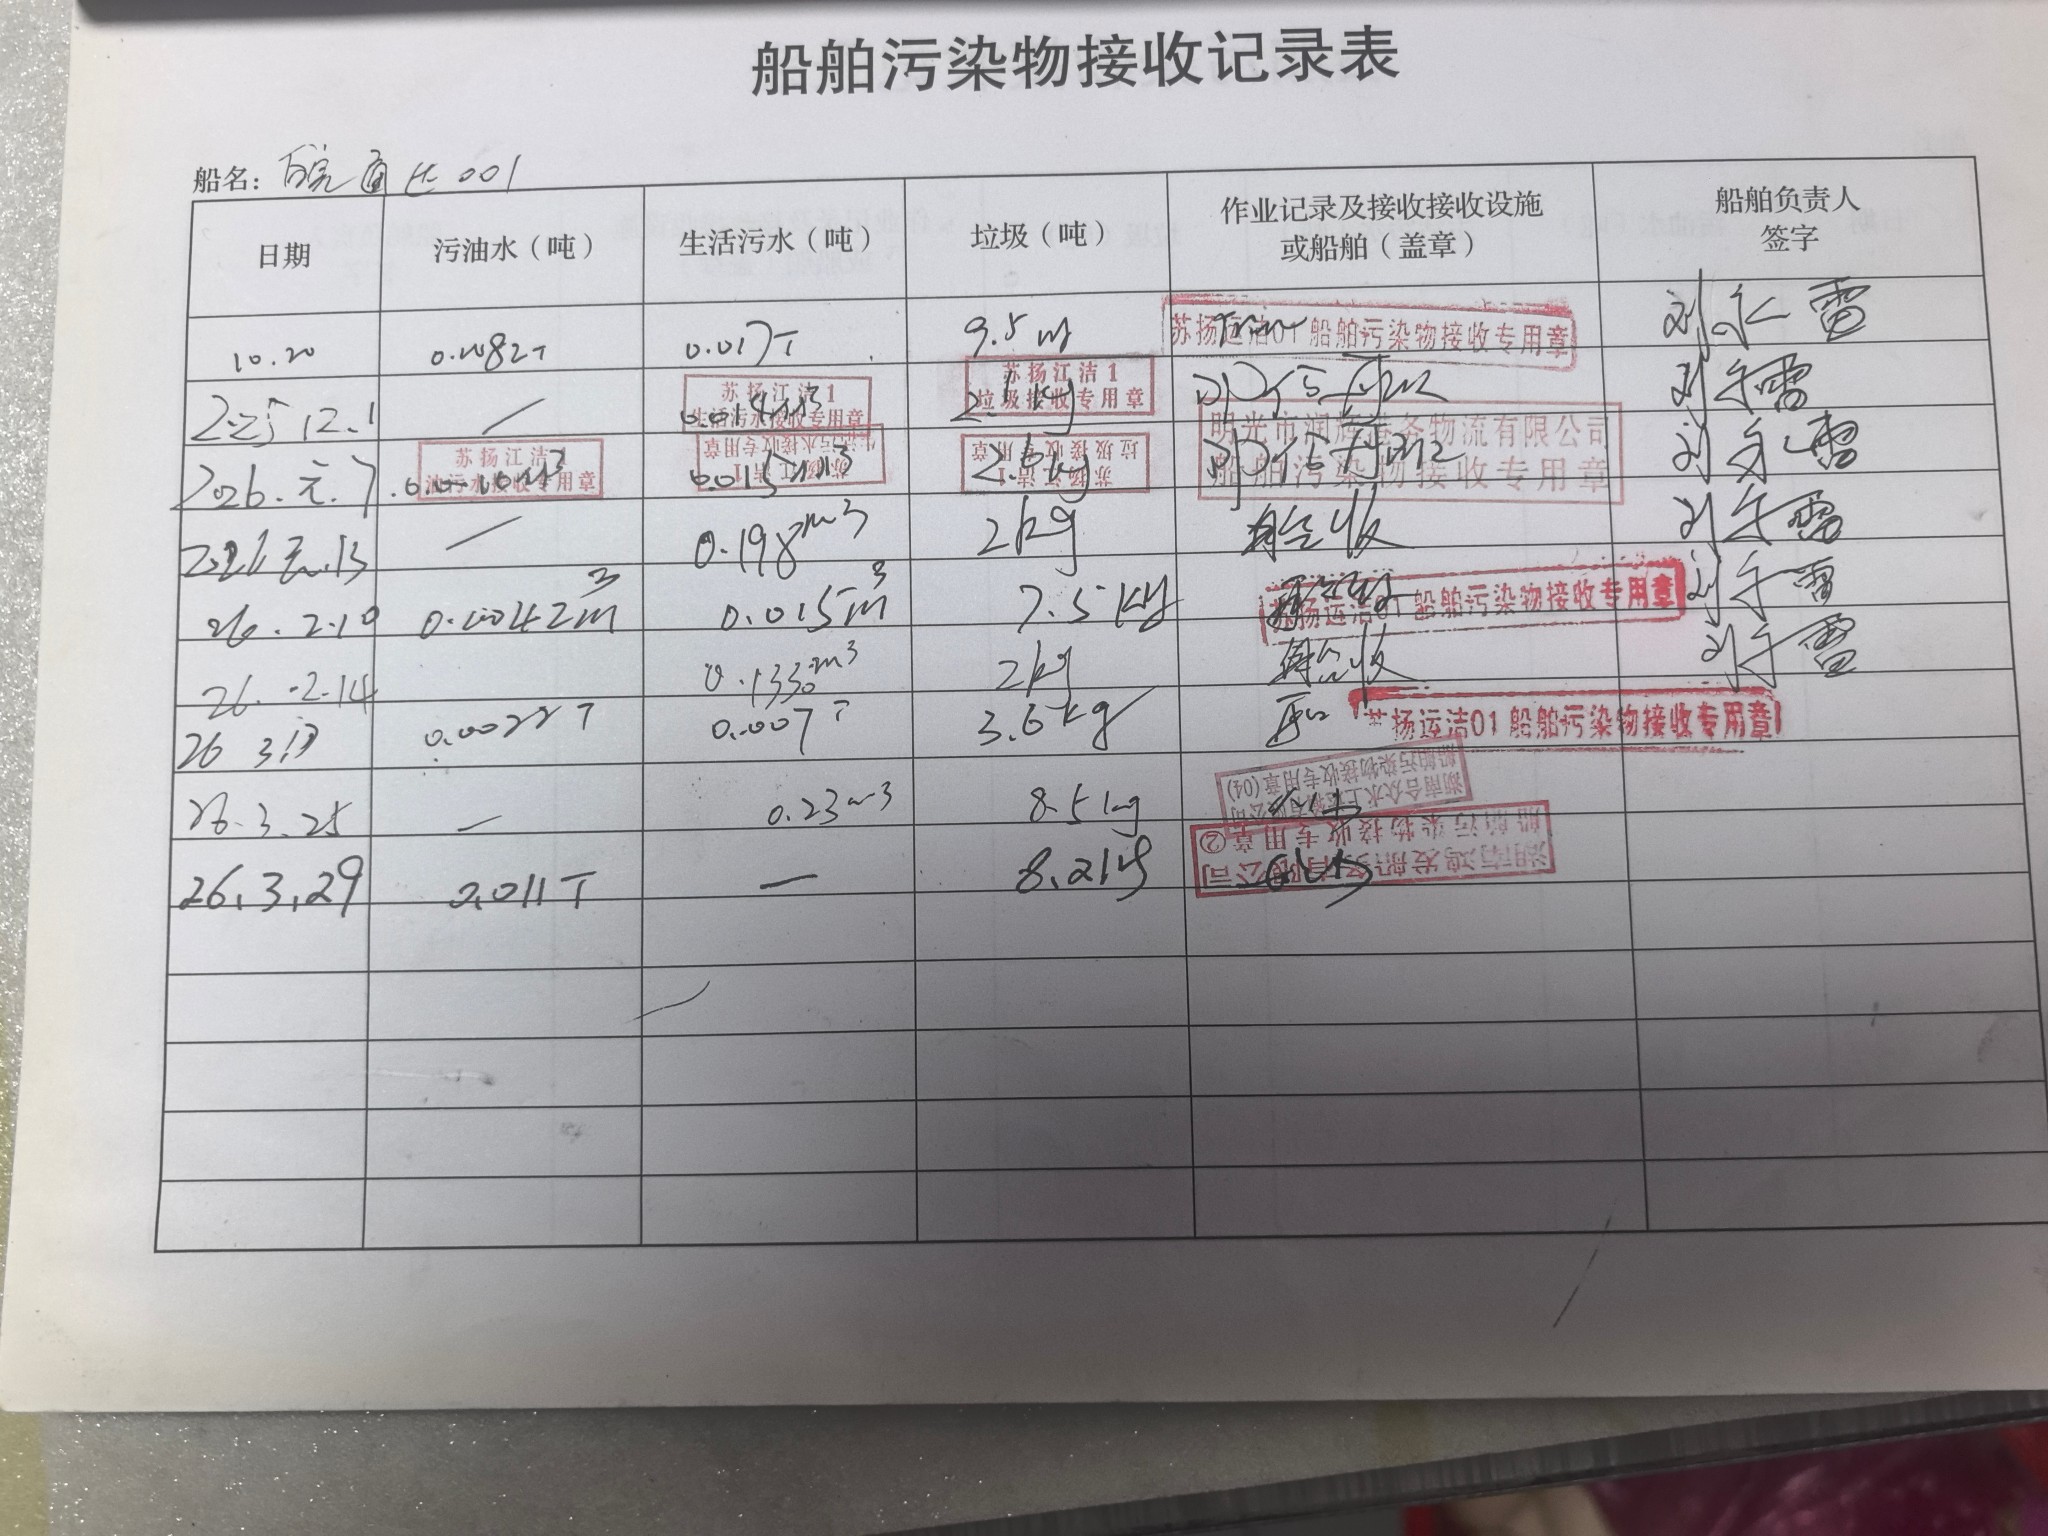 船舶污染物接收记录表
船名：皖通达001
日期 污油水（吨） 生活污水（吨） 垃圾（吨） 作业记录及接收接收设施或船舶（盖章） 船舶负责人签字
10.20 0.0082T 0.017T 9.5 苏扬运洁01船舶污染物接收专用章 刘永雷
12.1 / 苏扬江洁1 生活污水接收专用章 苏扬江洁1 垃圾接收专用章 刘永雷
2026.元.7 苏扬江洁1 油污水接收专用章 0.015m3 苏扬江洁1 生活污水接收专用章 2.6kg 苏扬江洁1 垃圾接收专用章 明光市润辉港务物流有限公司 船舶污染物接收专用章 刘永雷
2026.元.13 / 0.198m3 2kg 刘永雷
26.2.10 0.0042m3 0.015m3 7.5kg 苏扬运洁01船舶污染物接收专用章 刘永雷
26.2.14 2kg 刘永雷
26 3. 0.007T 3.6kg 苏扬运洁01船舶污染物接收专用章
26.3.25 — 0.23m3 8.5kg 船舶污染物接收专用章(04)
26.3.29 0.011T — 8.21kg 船舶污染物接收专用章②